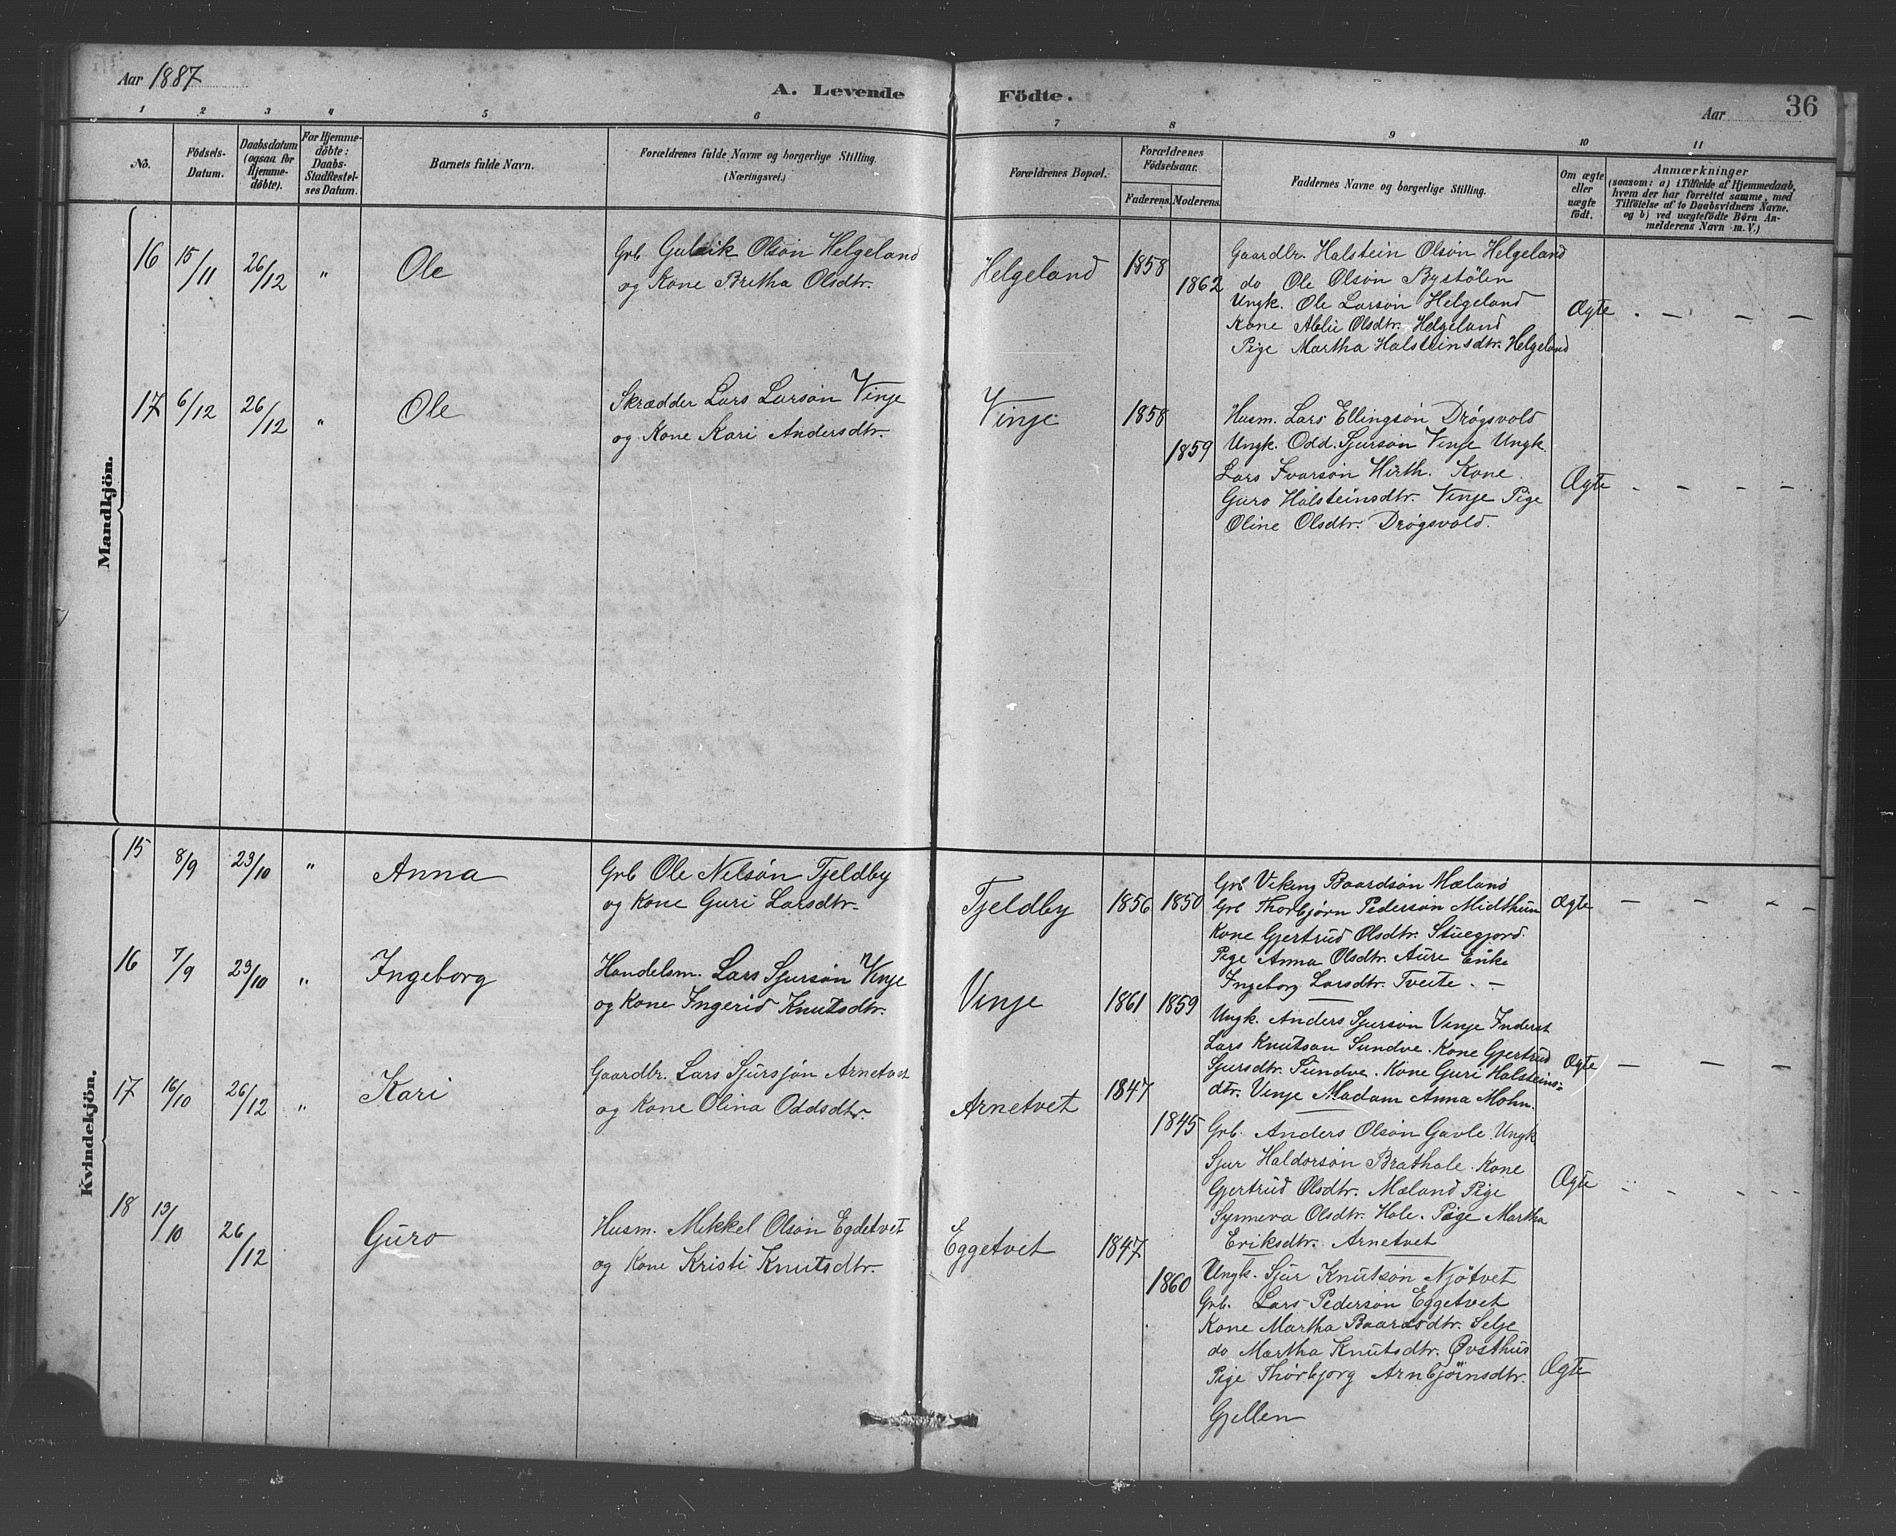 Aar 1887
A. Levende Födte.
Aar
36
1 2 3 4 5 6 7 8 9 10 11
No.
Födsels-Datum.
Daabsdatum (ogsaa for Hjemmedöbte).
For Hjemmedöbte: Daabs-Stadfæstelses Datum.
Barnets fulde Navn.
Forældrenes fulde Navne og borgerlige Stilling. (Næringsvei.)
Forældrenes Bopæl.
Forældrenes Födselsaar.
Faderens. Moderens.
Faddernes Navne og borgerlige Stilling.
Om ægte eller uægte födt.
Anmærkninger
(saasom: a) i Tilfælde af Hjemmedaab, hvem der har forrettet samme, med Tilföielse af to Daabsvidners Navne, og b) ved uægtefödte Børn Anmelderens Navn m. V.)
Mandkjön.
16 15/11 26/12 " Ole
Grb. Gulleik Olsøn Helgeland
og Kone Bretha Olsdtr.
Helgeland 1858 1862
Gaardbr. Halstein Olsøn Helgeland
do Ole Olsøn Bystølen
Ungk. Ole Larsøn Helgeland
Kone Ablu Olsdtr. Helgeland
Pige Martha Halsteinsdtr. Helgeland
Ægte . – – –
17 6/12 26/12 " Ole
Skrædder Lars Larsøn Vinje
og Kone Kari Andersdtr.
Vinje 1858 1859
Husm. Lars Ellingsøn Drøgsvold
Ungk. Odd Sjursøn Vinje Ungk.
Lars Ivarsøn Hirth. Kone
Guro Halsteinsdtr. Vinje Pige
Oline Olsdtr. Drøgsvold.
Ægte - - - -
Kvindekjön.
15 8/9 23/10 " Anna
Grb Ole Nelsøn Tjeldby
og Kone Guri Larsdtr.
Tjeldby 1856 1850
Grb Viking Baardsøn Mæland
Grb Thorbjørn Pedersøn Midthun
Kone Gjertrud Olsdtr. Stuegjord.
Pige Anna Olsdtr. Aure Enke
Ingeborg Larsdtr. Tveite. –
Ægte – – – –
16 7/9 23/10 " Ingeborg
Handelsm. Lars Sjursøn Vinje
og Kone Ingerid Knutsdtr.
Vinje 1861 1859
Ungk. Anders Sjursøn Vinje Inderst
Lars Knutson Sundve. Kone Gjertrud
Sjursdtr. Sundve. Kone Guri Halsteins-
dtr. Vinje Madam Anna Mohn.
Ægte – – –
17 16/10 26/12 " Kari
Gaardbr. Lars Sjursjøn Arnetvet
og Kone Olina Oddsdtr.
Arnetvet 1847 1845
Grb. Anders Olsøn Gavle Ungk
Sjur Haldorsøn Brathole. Kone
Gjertrud Olsdtr. Mæland Pige
Synneva Olsdtr. Hole. Pige Martha
Eriksdtr. Arnetvet
Ægte - - - -
18 13/10 26/12 Guro
Husm. Mikkel Olsøn Egdetvet
og Kone Kristi Knutsdtr.
Eggetvet 1847 1860
Ungk. Sjur Knutsøn Njøtvet
Grb. Lars Pedersøn Eggetvet
Kone Martha Baardsdtr. Selje
do Martha Knutsdtr. Øvsthus
Pige Thorbjorg Arnbjørnsdtr.
Gjellen
Ægte